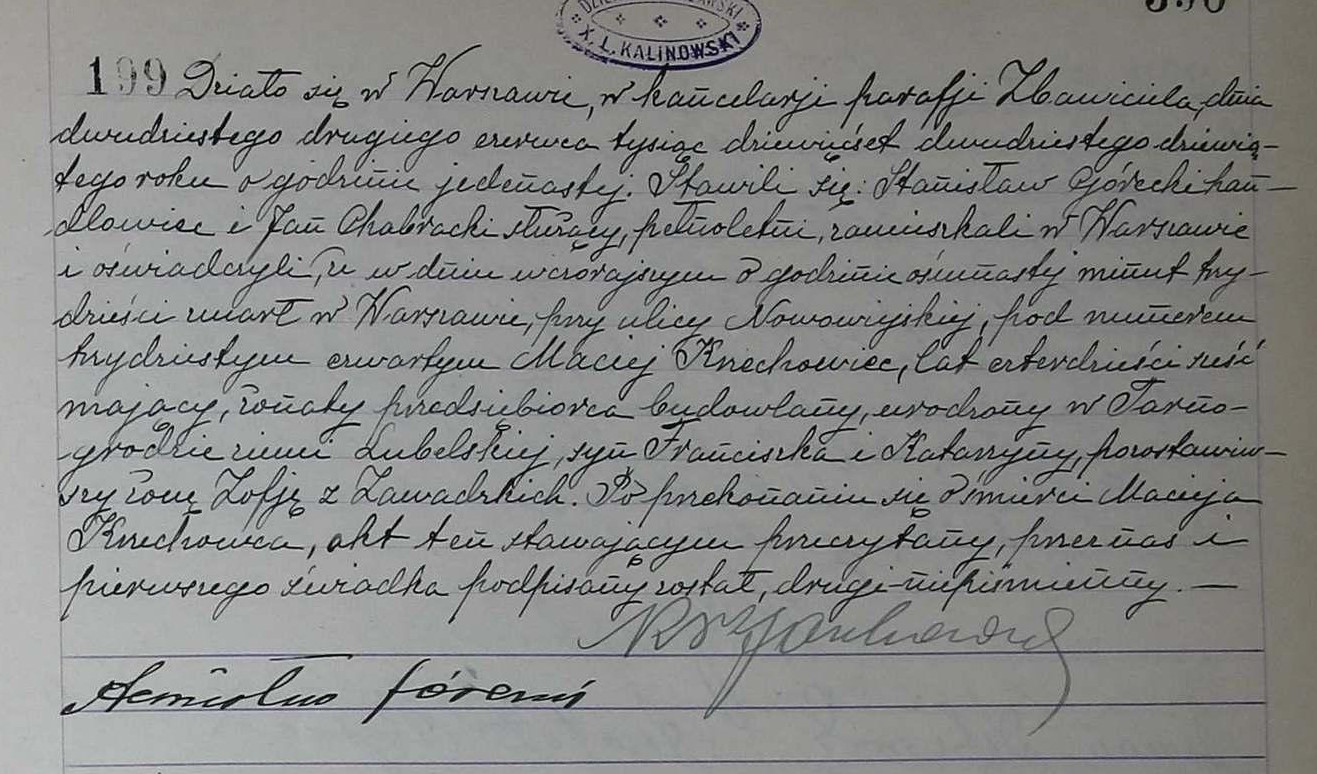 X. L. KALINOWSKI
199 Działo się w Warszawie, w kancelarji parafji Zbawiciela, dnia
dwudziestego drugiego czerwca tysiąc dziewięćset dwudziestego dziewią-
tego roku o godzinie jedenastej. Stawili się: Stanisław Górecki han-
dlowiec i Jan Chabracki służący, pełnoletni, zamieszkali w Warszawie
i oświadczyli, że w dniu wczorajszym o godzinie ósmnastej minut trzy-
dzieści zmarł w Warszawie, przy ulicy Nowowiejskiej, pod numerem
trzydziestym czwartym Maciej Kniechowiec, lat czterdzieści sześć
mający, żonaty przedsiębiorca budowlany, urodzony w Tarno-
grodzie ziemi Lubelskiej, syn Franciszka i Katarzyny, pozostawiw-
szy żonę Zofję z Zawadzkich. Po przekonaniu się o śmierci Macieja
Kniechowca, akt ten stawającym przeczytany, przez nas i
pierwszego świadka podpisany został, drugi niepiśmienny. —
Stanisław Górecki